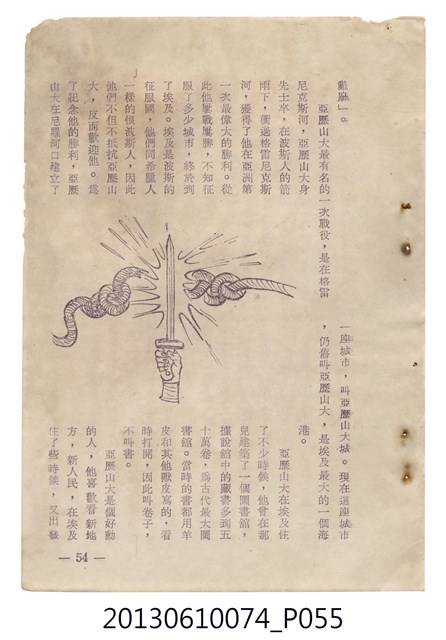 難麻」。
亞歷山大最有名的一次戰役，是在格雷
尼克斯河，亞歷山大身
先士卒，在波斯人的箭
雨下，衝過格雷尼克斯
河，獲得了他在亞洲第
一次最偉大的勝利。從
此他屢戰屢勝，不知征
服了多少城市，終於到
了埃及。埃及是波斯的
征服國，他們同希臘人
一樣的恨波斯人，因此
他們不但不抵抗亞歷山
大，反而歡迎他。爲
了記念他的勝利，亞歷
山大在尼羅河口建立了
一座城市，叫亞歷山大城。現在這座城市
，仍舊叫亞歷山大，是埃及最大的一個海
港。
亞歷山大在埃及住
了不少時候，他曾在那
兒建築了一個圖書館，
據說館中的藏書多到五
十萬卷，爲古代最大圖
書館。當時的書都用羊
皮和其他獸皮寫的，看
時打開，因此叫卷子，
不叫書。
亞歷山大是個好動
的人，他喜歡看新地
方，新人民，在埃及
住了些時候，又出發
— 54 —
20130610074_P055